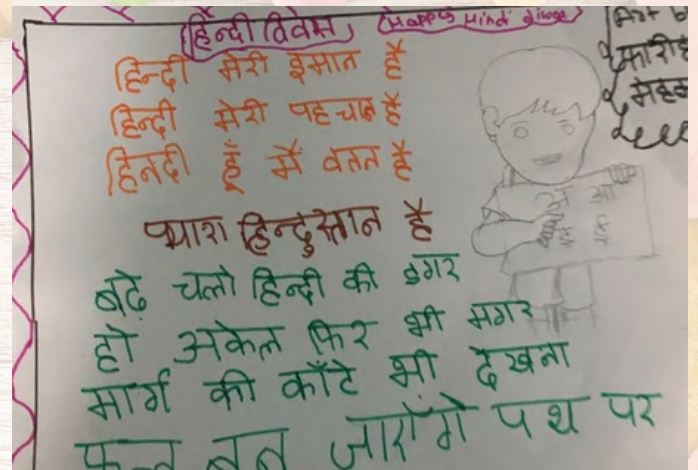 हिन्दी दिवस, (Happy Hindi diwas)
हिन्दी मेरी इमान है
हिन्दी मेरी पहचान है
हिनदी हूँ मैं वतन है
प्यारा हिन्दुस्तान है
बढे चलो हिन्दी की डगर
हो अकेले फिर भी मगर
मार्ग की काँटे भी देखना
फूल बन जाऐंगे पथ पर
अ आ